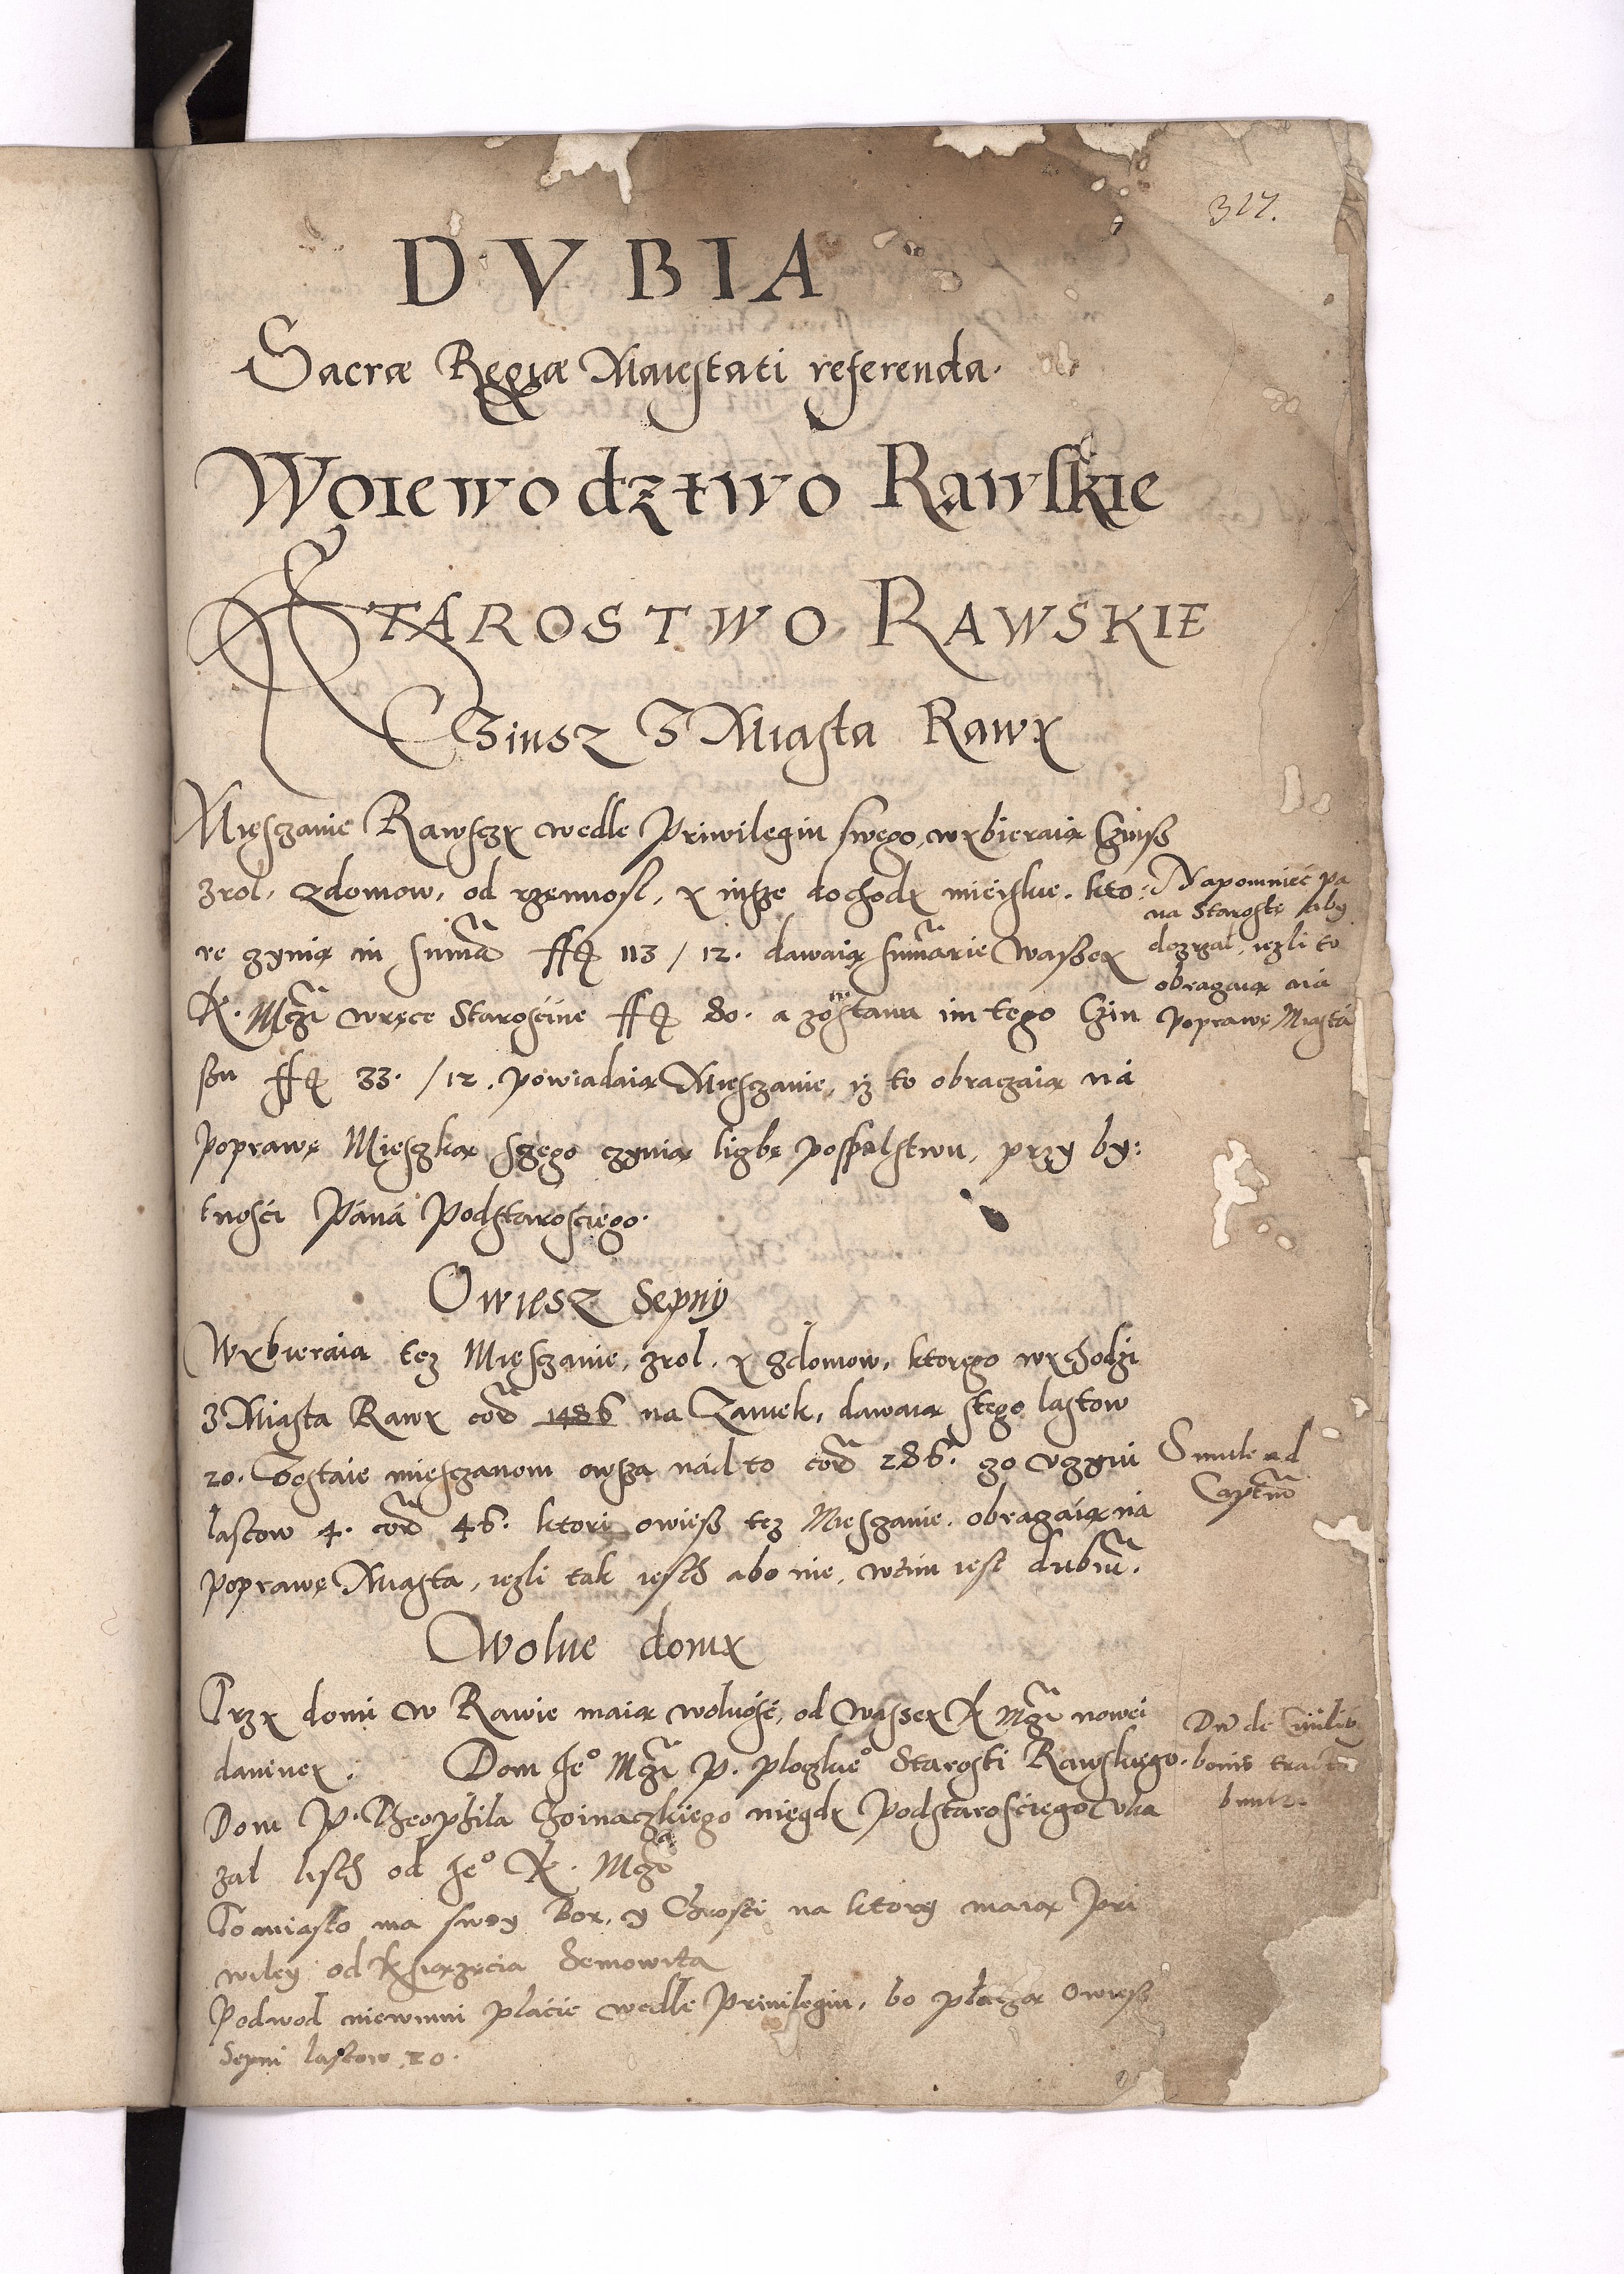 317.
DVBIA
Sacræ Regiæ Maiestati referenda.
Woiewodztwo Rawskie
STAROSTWO RAWSKIE
Czinsz Z Miasta Rawy
Miesczanie Rawsczy wedle Priwilegiu swego, wybieraią Czinsz
zrol, zdomow, od rzemiosl, y insze dochody mieiskie, kto:
re czynią in sum̃a ff 113 / 12. dawaią sum̃arie Waszey
K. Mczi wręce Starosćine ff 80. a zostawa im tego Czin
szu ff 33. / 12. powiadaią Miesczanie, iż to obraczaią ná
poprawę Mieszką sczego czynią liczbę pospolstwu, przy by:
tnośći Páná Podstarosciego.
Napomnieć pa
na Starostę aby
dozrzal, iezli to
obraczaią ná
poprawę Miastá
Owiesz Sepny
Wybieraia tez Miesczanie, zrol, y zdomow, ktorego wychodzi
z Miasta Rawy cor̃ 1486 na Zamek, dawaią stego lastow
20. Zostaie miesczanom owsza nád to cor̃ 286. zo vczyni
lastow 4. cor̃ 46. ktori owiesz tez Miesczanie obraczaią ná
poprawę Miasta, iezli tak iesth abo nie, wtim iest dubiũ.
Simile ad
Capt̃m
Wolne domy
Trzy domi w Rawie maią wolność, od Waszey K Mczi nowei
daniney. Dom Jeº Mczi P. Ploczkieº Starosti Rawskiego.
Dom P. Theophila Choinaczkiego niegdy Podstarosciego vka
zal listh od Jeº K. Mczi
Dñ de
bonis
To miasto ma swoy Bor, y Chrosti na ktory maią Pri
wiley od Ksiązęcia Semowita
Podwod niewinni płacie wedle Priuilegiu, bo płaczą Owiesz
Sepni lastow 20.